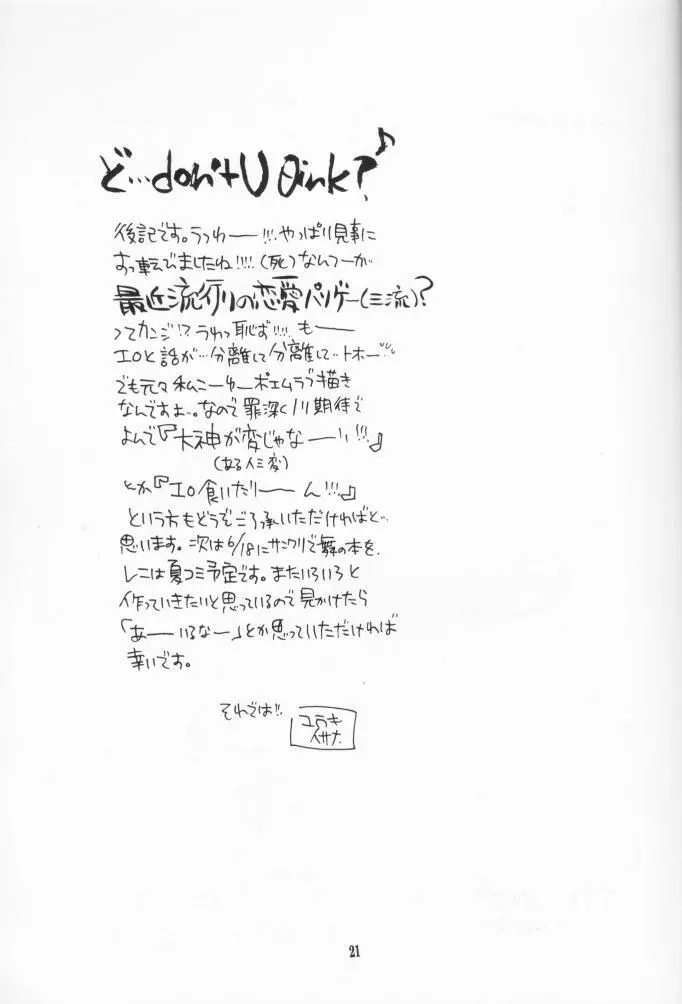 ど…don't U θink?♪
後記です。うっわー!!! やっぱり見事に
すっ転んでましたね!!!! (死) なんつーか
最近流行りの恋愛パソゲー(三流)?
ってカンジ!? うわっ恥ず!!!! もー
エロと話が…分離して分離して…トホー
でも元々私こーゆーポエムラブ描き
なんですよ…。なので罪深くノリ期待で
よんで『大神が変じゃなーい!!!』
(ある人ミ変)
とか『エロ食いたりーん!!!』
という方もどうぞご了承いただければと…
思います。次は6/18にサンクリで舞の本を、
レニは夏コミ予定です。またいろいろと
作っていきたいと思っているので見かけたら
「あーいるなー」とか思っていただければ
幸いです。
それでは!!
ユラキ
イサナ
21